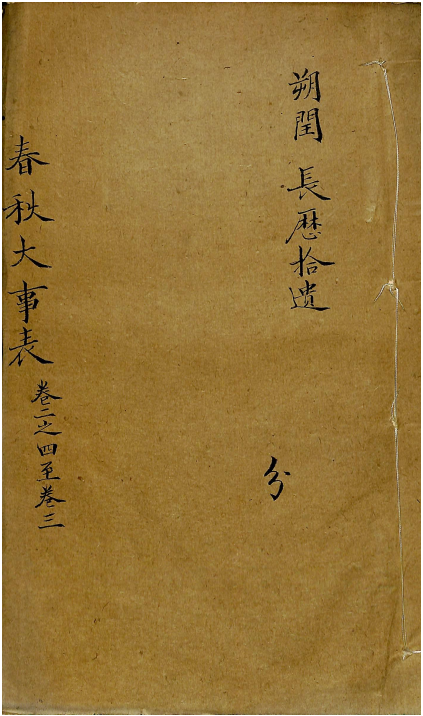 朔閏 長厯拾遺
分
春秋大事表
卷二之四至卷三